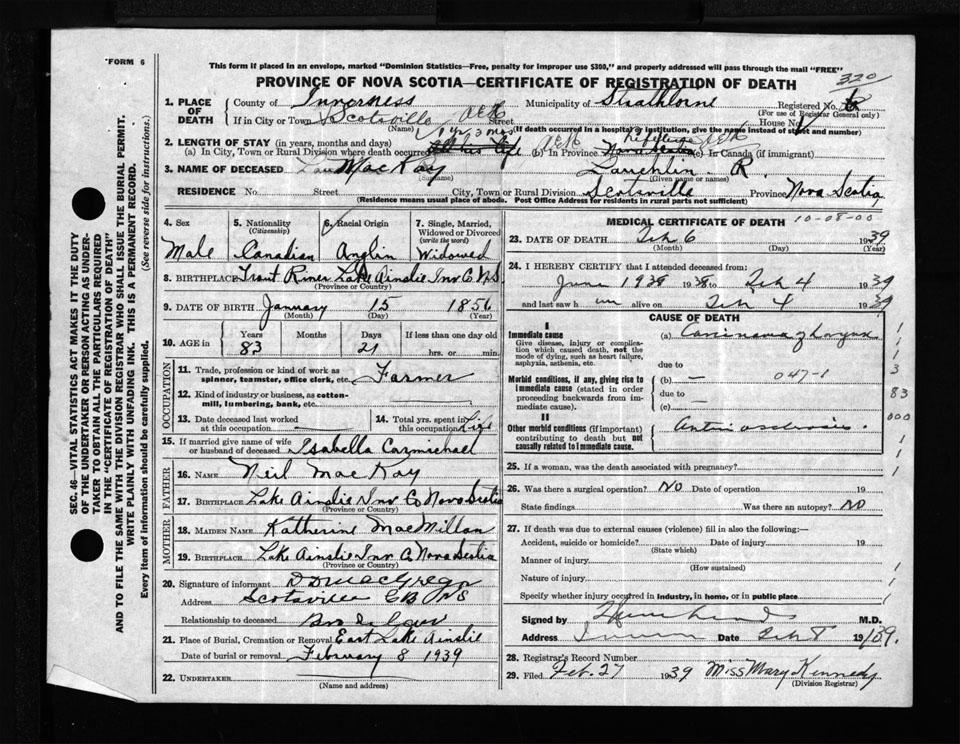 FORM 6
This form if placed in an envelope, marked "Dominion Statistics—Free, penalty for improper use $300," and properly addressed will pass through the mail "FREE"
PROVINCE OF NOVA SCOTIA—CERTIFICATE OF REGISTRATION OF DEATH
320
1. PLACE OF DEATH
County of Inverness Municipality of Strathlorne Registered No.
(For use of Registrar General only)
If in City or Town Scotsville Street House No.
(Name) (If death occurred in a hospital or institution, give the name instead of street and number)
1 yr 3 mos
2. LENGTH OF STAY (in years, months and days)
(a) In City, Town or Rural Division where death occurred All his Life (b) In Province Nova Scotia (c) In Canada (if immigrant)
3. NAME OF DECEASED MacKay Lauchlin R.
(Surname) (Given name or names)
RESIDENCE No. Street City, Town or Rural Division Scotsville Province Nova Scotia
(Residence means usual place of abode. Post Office Address for residents in rural parts not sufficient)
4. Sex Male
5. Nationality (Citizenship) Canadian
6. Racial Origin Anglin
7. Single, Married, Widowed or Divorced (write the word) Widowed
8. BIRTHPLACE Trout River Lake Ainslie Inv C NS
(Province or Country)
9. DATE OF BIRTH January 15 1856
(Month) (Day) (Year)
10. AGE in Years Months Days If less than one day old
83 21 hrs. or min.
OCCUPATION
11. Trade, profession or kind of work as spinner, teamster, office clerk, etc. Farmer
12. Kind of industry or business, as cotton-mill, lumbering, bank, etc.
13. Date deceased last worked at this occupation
14. Total yrs. spent in this occupation Life
15. If married give name of wife or husband of deceased Isabella Carmichael
FATHER
16. NAME Neil MacKay
17. BIRTHPLACE Lake Ainslie Inv Co Nova Scotia
(Province or Country)
MOTHER
18. MAIDEN NAME Katherine MacMillan
19. BIRTHPLACE Lake Ainslie Inv Co Nova Scotia
(Province or Country)
20. Signature of informant D D MacGregor
Address Scotsville CB NS
Relationship to deceased Bro In Law
21. Place of Burial, Cremation or Removal East Lake Ainslie
Date of burial or removal February 8 1939
22. UNDERTAKER
(Name and address)
MEDICAL CERTIFICATE OF DEATH 10-08-00
23. DATE OF DEATH Feb 6 1939
(Month) (Day) (Year)
24. I HEREBY CERTIFY that I attended deceased from:
June 1938 1938 to Feb 4 1939
and last saw him alive on Feb 4 1939
CAUSE OF DEATH
I
Immediate cause (a) Carcinoma of Larynx
Give disease, injury or complication which caused death, not the mode of dying, such as heart failure, asphyxia, asthenia, etc.
due to
Morbid conditions, if any, giving rise to immediate cause (stated in order proceeding backwards from immediate cause).
(b) — 047-1
due to
(c) —
II
Other morbid conditions (if important) contributing to death but not causally related to immediate cause.
1
1
3
83
000
1
1
25. If a woman, was the death associated with pregnancy?
26. Was there a surgical operation? NO Date of operation 19
State findings Was there an autopsy? NO
27. If death was due to external causes (violence) fill in also the following:—
Accident, suicide or homicide? Date of injury 19
(State which)
Manner of injury
(How sustained)
Nature of injury
Specify whether injury occurred in industry, in home, or in public place
Signed by M.D.
Address Date Feb 8 1939.
28. Registrar's Record Number
29. Filed Feb. 27 1939 Miss Mary Kennedy
(Division Registrar)
SEC. 46—VITAL STATISTICS ACT MAKES IT THE DUTY OF THE UNDERTAKER OR PERSON ACTING AS UNDERTAKER TO OBTAIN ALL THE PARTICULARS REQUIRED IN THE "CERTIFICATE OF REGISTRATION OF DEATH" AND TO FILE THE SAME WITH THE DIVISION REGISTRAR WHO SHALL ISSUE THE BURIAL PERMIT.
WRITE PLAINLY WITH UNFADING INK. THIS IS A PERMANENT RECORD.
Every item of information should be carefully supplied. (See reverse side for instructions.)